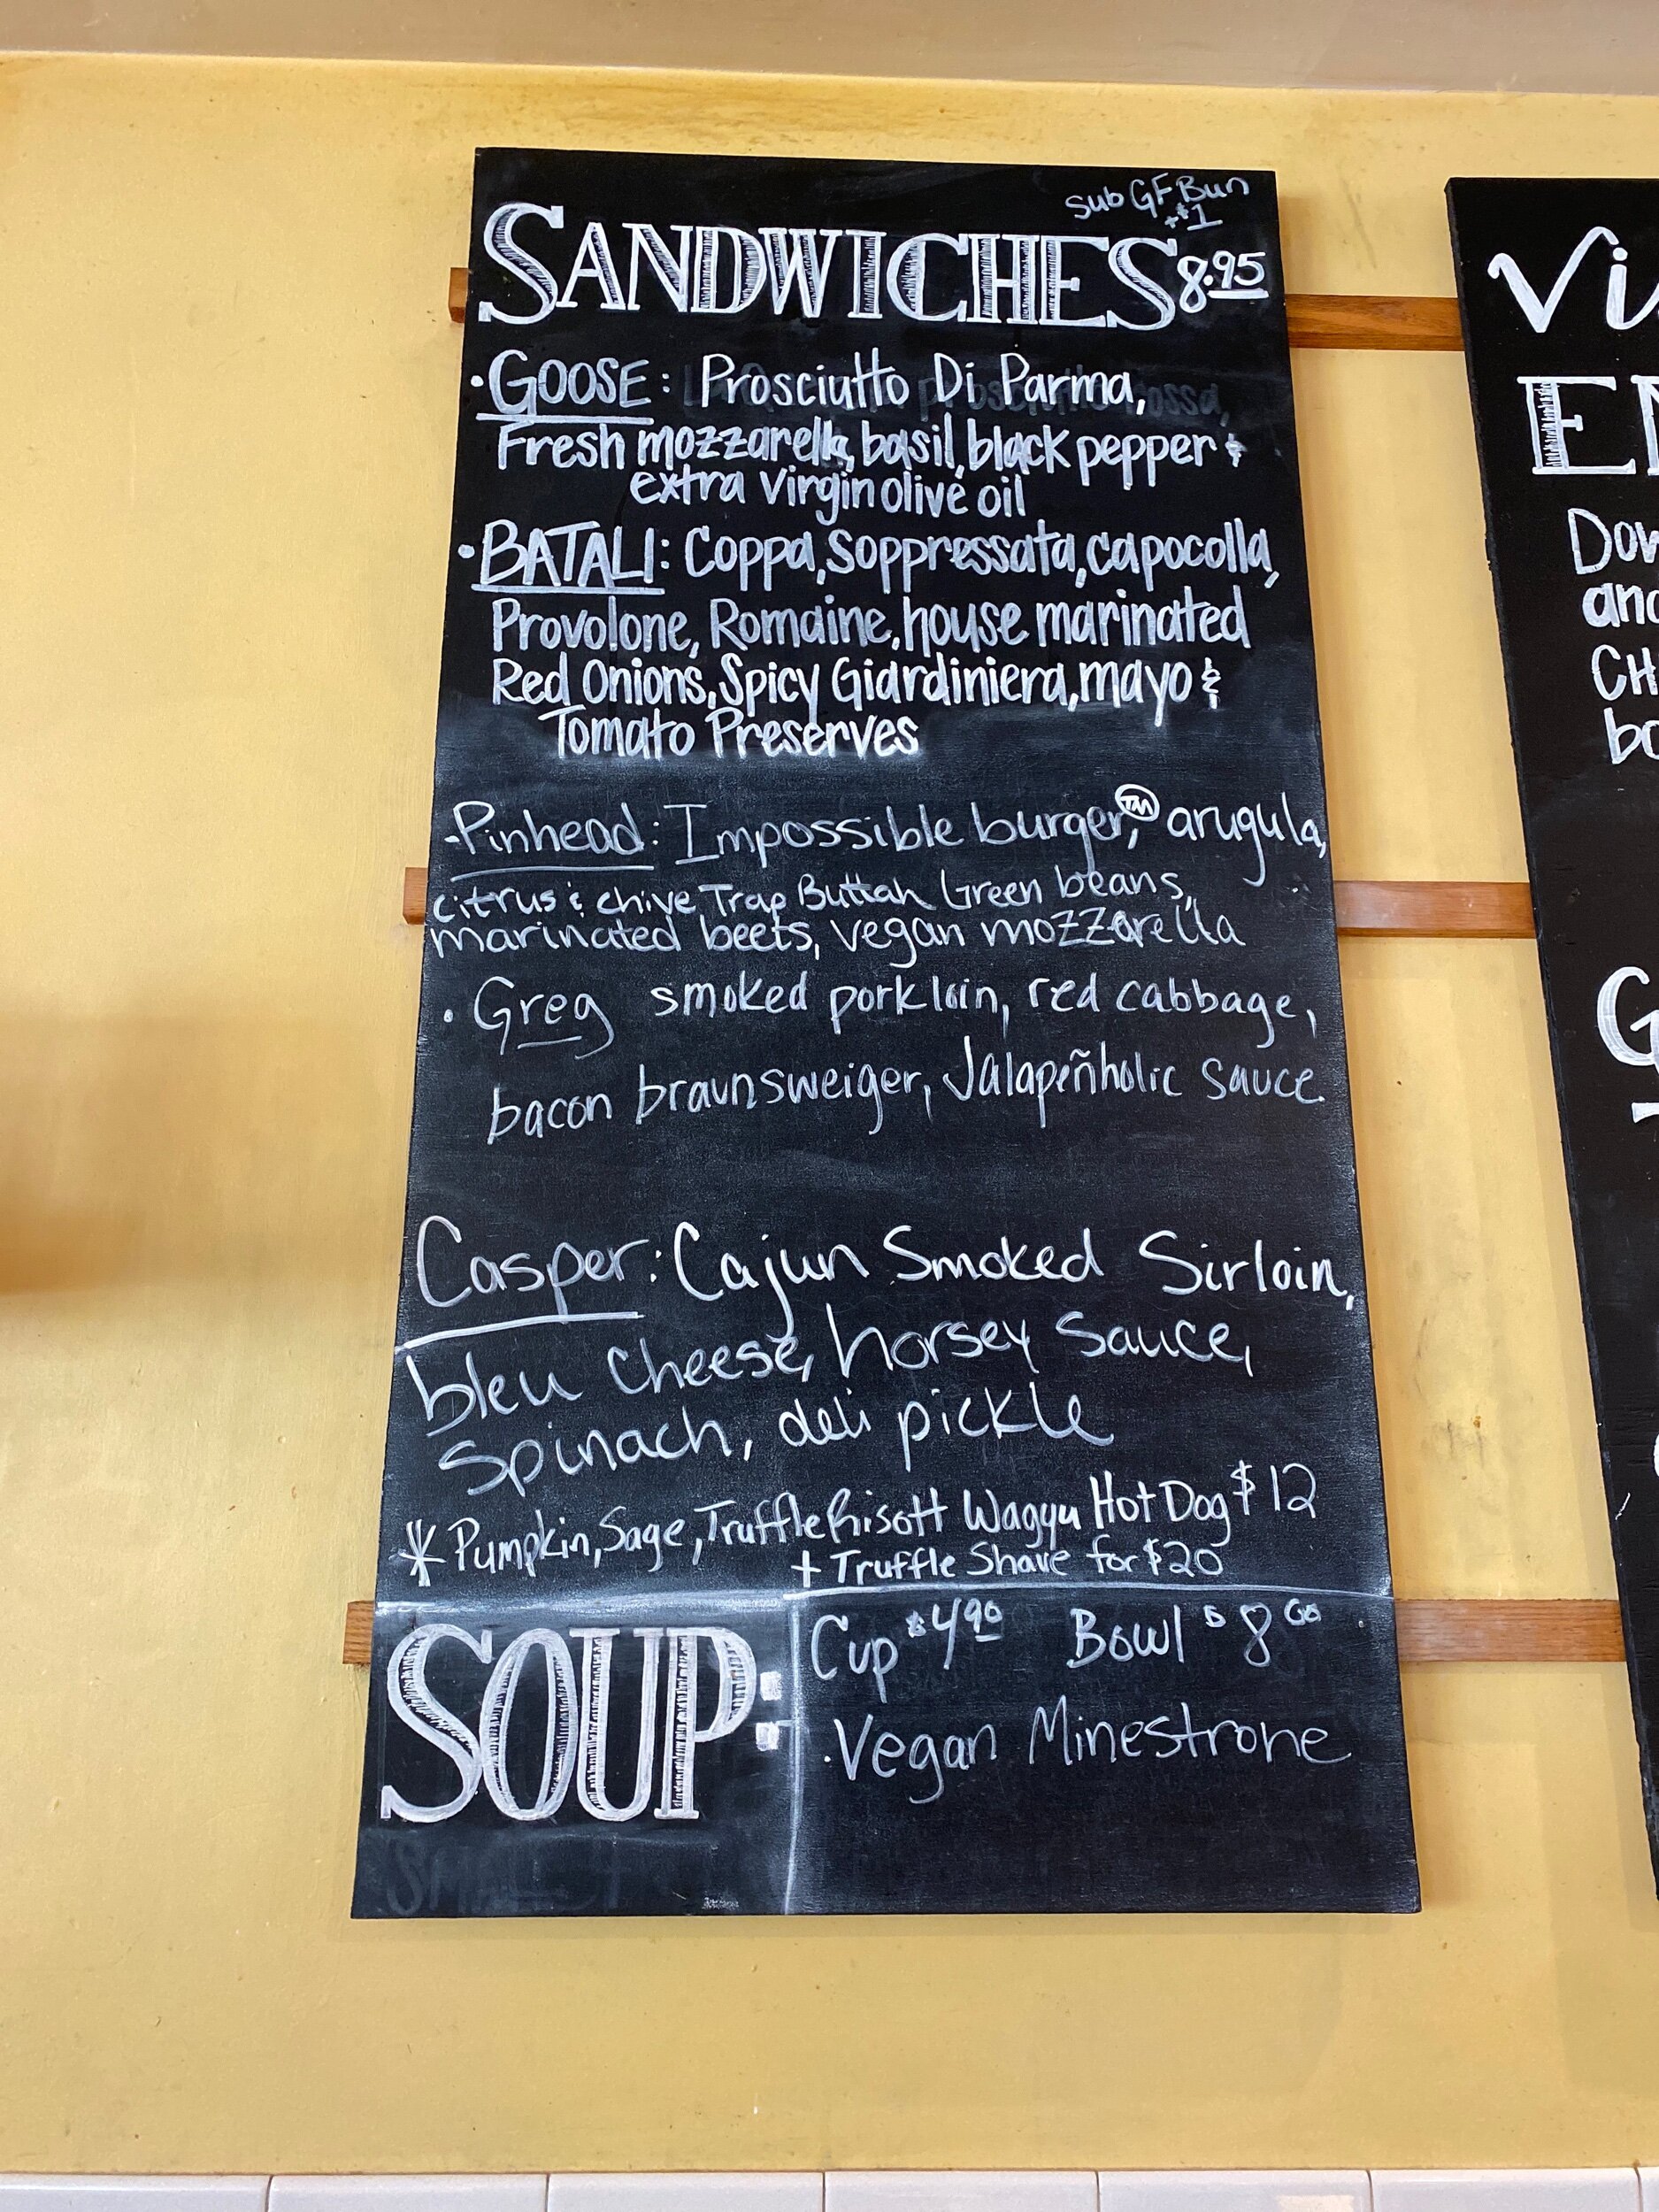 Sub GF Bun
+$1
SANDWICHES 8.95
·GOOSE: Prosciutto Di Parma,
Fresh mozzarella, basil, black pepper &
extra virgin olive oil
·BATALI: Coppa, Soppressata, capocolla,
Provolone, Romaine, house marinated
Red Onions, Spicy Giardiniera, mayo &
Tomato Preserves
·Pinhead: Impossible burger,™ arugula,
citrus & chive Trap Buttah Green beans,
marinated beets, vegan mozzarella
·Greg smoked pork loin, red cabbage,
bacon braunsweiger, Jalapeñholic sauce
Casper: Cajun Smoked Sirloin,
bleu cheese, horsey sauce,
spinach, deli pickle
*Pumpkin, Sage, Truffle Risott Wagyu Hot Dog $12
+ Truffle Shave for $20
SOUP:
Cup $4.90 Bowl $8.00
·Vegan Minestrone
Vi
E
Dow
and
CH
bo
G